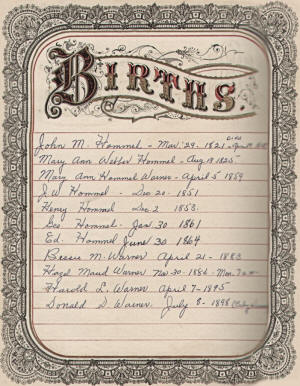 BIRTHS.
John M. Hommel - Mar. 29. 1821 Died
Mary Ann Webber Hommel - Aug 19 1825
Mary Ann Hommel Warner - April 5 1859
J.W. Hommel - Dec 20 - 1851
Henry Hommel Dec 2 1853.
Geo Hommel - Jan 30 1861
Ed. Hommel June 30 1864
Bessie M. Warner April 21 - 1883
Hazel Maud Warner Nov. 30 - 1886 -
Harold L. Warner April 7 - 1895
Donald D. Warner. July 8 - 1898